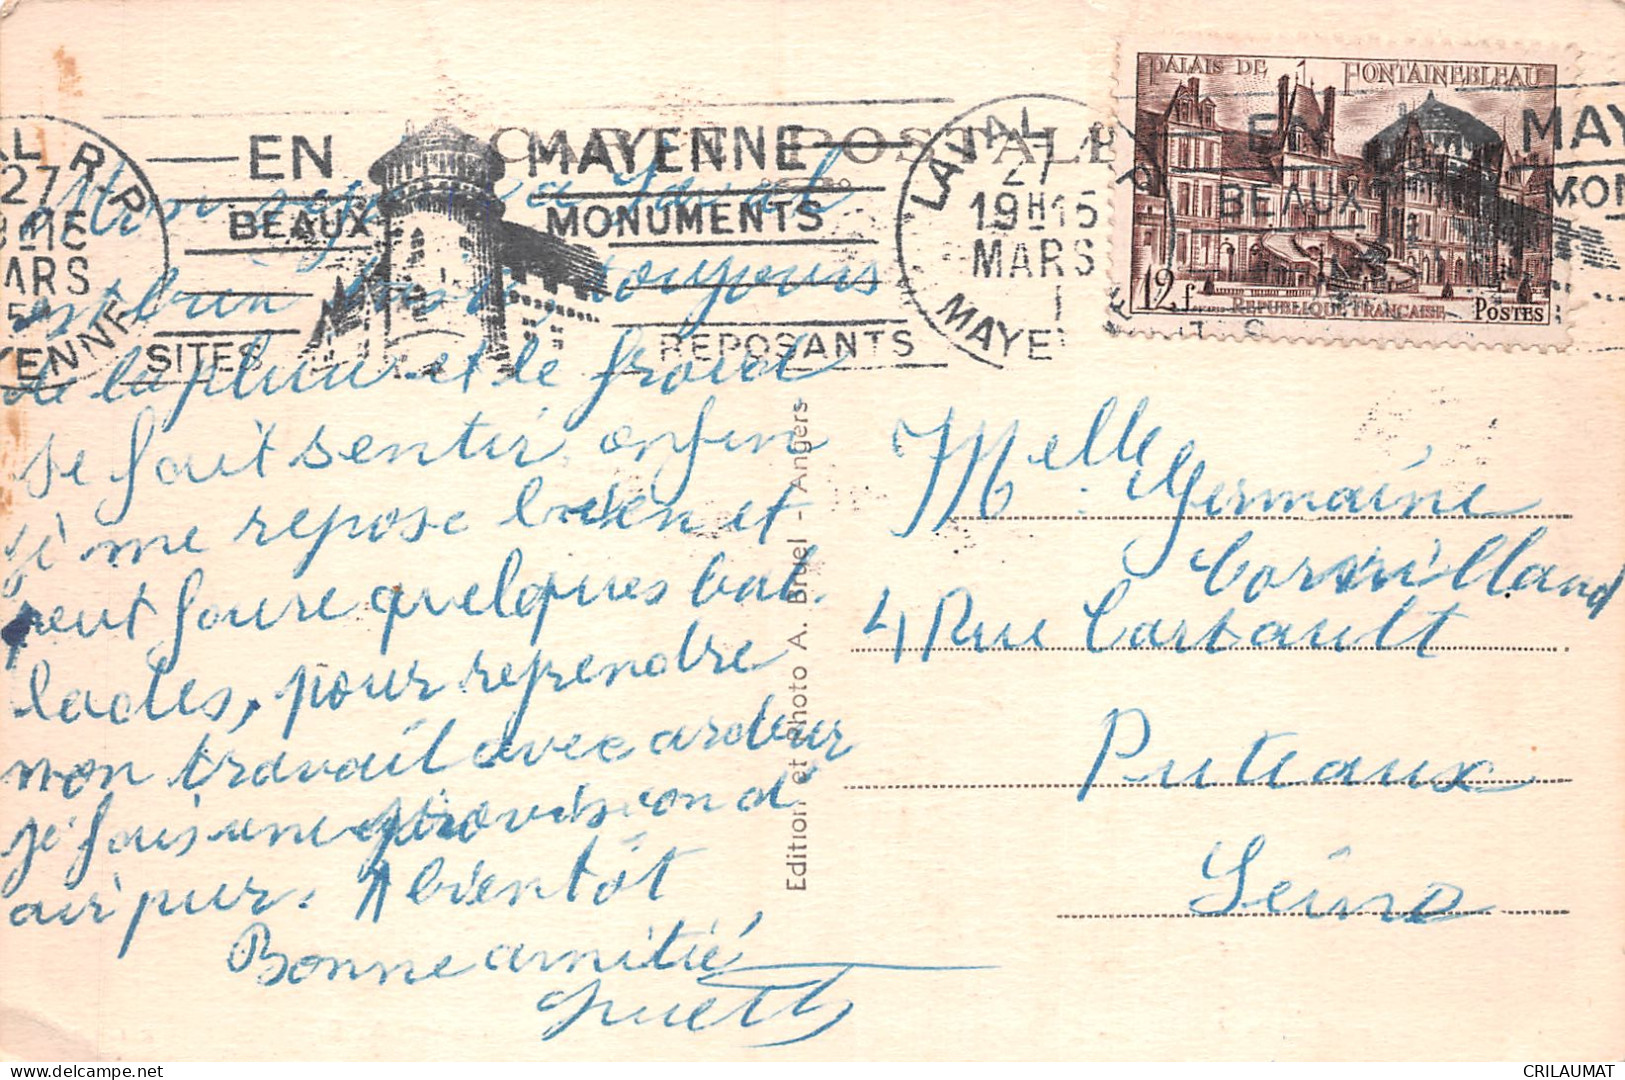 CARTE POSTALE
LAVAL R.P.
27
19H15
MARS
MAYENNE
EN MAYENNE
BEAUX MONUMENTS
SITES REPOSANTS
LAVAL R.P.
27
19H15
MARS
MAYENNE
PALAIS DE FONTAINEBLEAU
12f
REPUBLIQUE FRANÇAISE
POSTES
EN MAY
BEAUX MON
Mon séjour a Laval
est bien toujours
de la pluie et le froid
se fait sentir, enfin
je me repose bien et
peut faire quelques bal.
lades, pour reprendre
mon travail avec ardeur
je fais une provision d'
air pur. A bientôt
Bonne amitié
Edition et Photo A. Bruel - Angers
Melle Germaine
4 Rue Cartault
Puteaux
Seine
CRILAUMAT